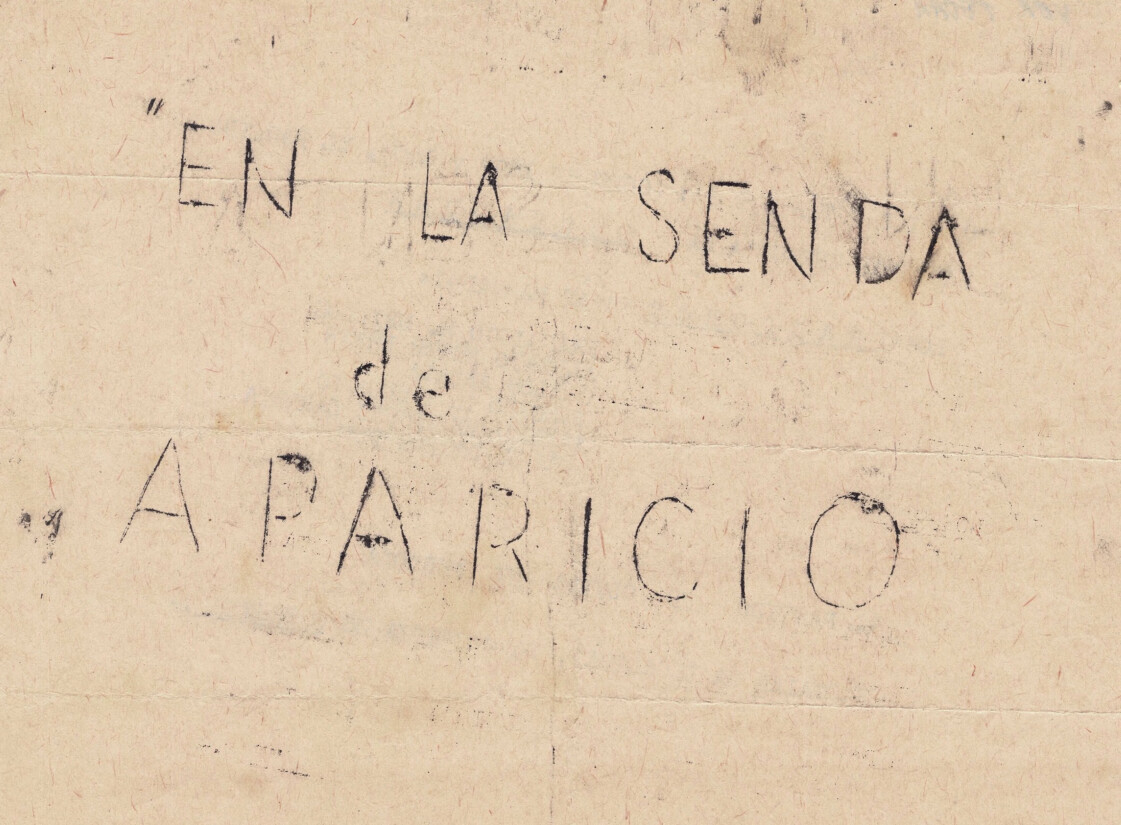 "EN LA SENDA
de
APARICIO